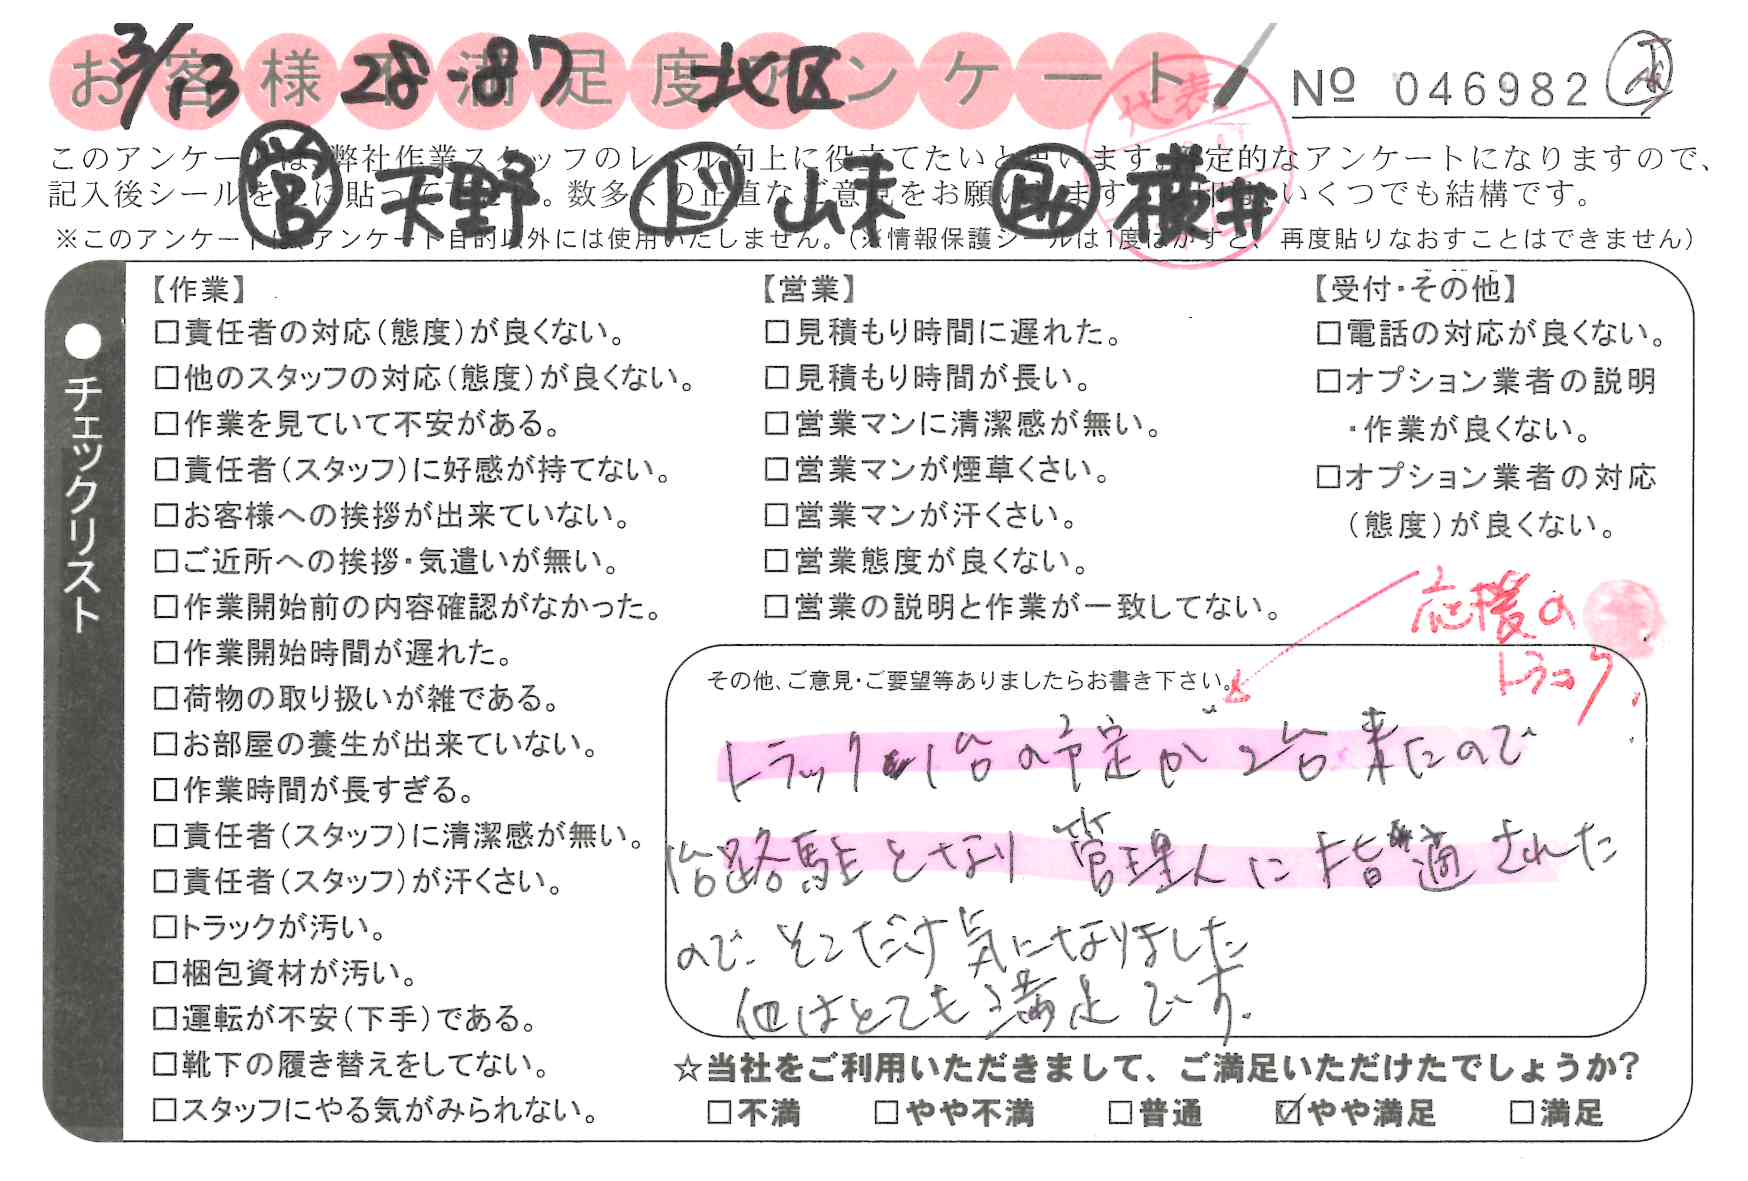 お客様不満足度アンケート
3/13 28-87 北区
No 046982
このアンケートは、弊社作業スタッフのレベル向上に役立てたいと思います。否定的なアンケートになりますので、
記入後シールを上に貼って下さい。数多くの正直なご意見をお願いします。
いくつでも結構です。
営 天野 ド 山末 助 横井
代表
※このアンケートは、アンケート目的以外には使用いたしません。(※情報保護シールは1度はがすと、再度貼りなおすことはできません)
●チェックリスト
【作業】
□責任者の対応(態度)が良くない。
□他のスタッフの対応(態度)が良くない。
□作業を見ていて不安がある。
□責任者(スタッフ)に好感が持てない。
□お客様への挨拶が出来ていない。
□ご近所への挨拶・気遣いが無い。
□作業開始前の内容確認がなかった。
□作業開始時間が遅れた。
□荷物の取り扱いが雑である。
□お部屋の養生が出来ていない。
□作業時間が長すぎる。
□責任者(スタッフ)に清潔感が無い。
□責任者(スタッフ)が汗くさい。
□トラックが汚い。
□梱包資材が汚い。
□運転が不安(下手)である。
□靴下の履き替えをしてない。
□スタッフにやる気がみられない。
【営業】
□見積もり時間に遅れた。
□見積もり時間が長い。
□営業マンに清潔感が無い。
□営業マンが煙草くさい。
□営業マンが汗くさい。
□営業態度が良くない。
□営業の説明と作業が一致してない。
【受付・その他】
□電話の対応が良くない。
□オプション業者の説明
・作業が良くない。
□オプション業者の対応
(態度)が良くない。
応援の
トラック
その他、ご意見・ご要望等ありましたらお書き下さい。
トラック1台の予定が2台来たので
路駐となり管理人に指適された
ので、そこだけ気になりました
他はとても満足です。
☆当社をご利用いただきまして、ご満足いただけたでしょうか?
□不満 □やや不満 □普通 ☑やや満足 □満足